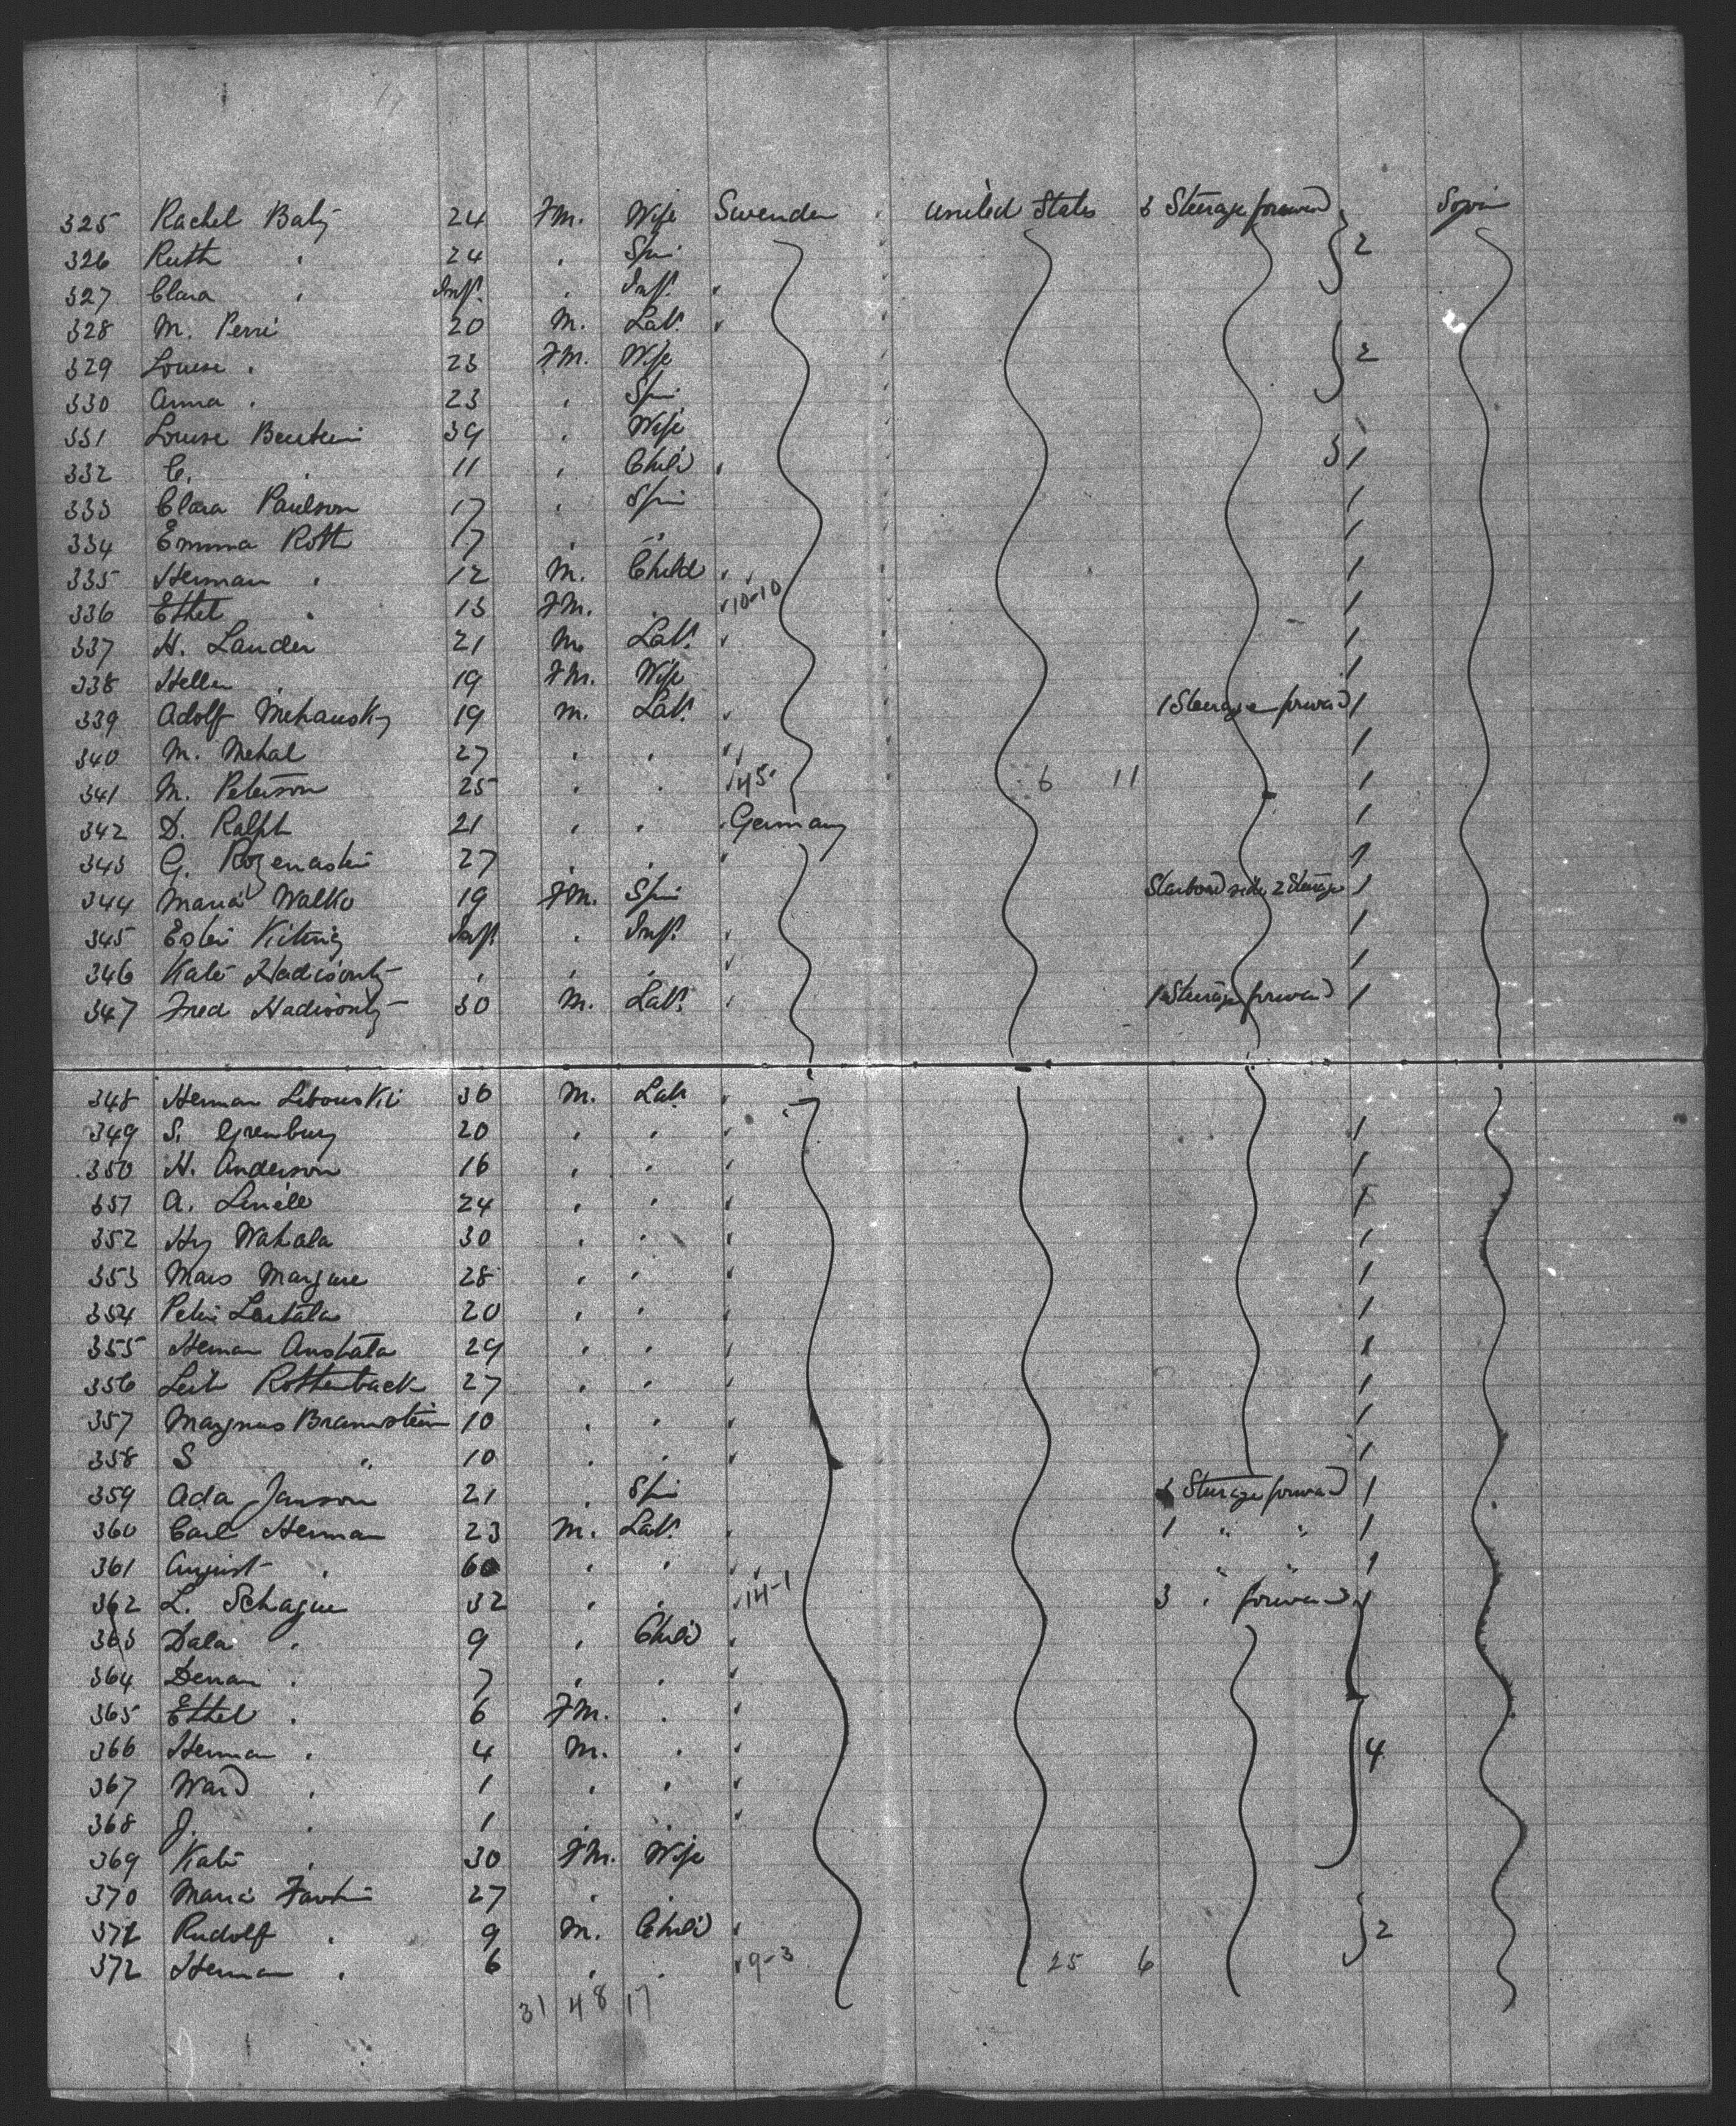 325 Rachel Baly 24 Fm. Wife Swenden United States 3 Steerage forward 2
326 Ruth " 24 " Spin
327 Clara " Inft. " Inft.
328 M. Perri 20 M. Lab. 2
329 Louise " 23 Fm. Wife
330 Anna " 23 " Spin
331 Louise 39 " Wife
332 C. " 11 " Child 1
333 Clara Paulson 17 " Spin 1
334 Emma Roth 17 " " 1
335 Herman " 12 M. Child 1
336 Ethel " 13 Fm. " 10-10 1
337 H. Lander 21 M. Lab. 1
338 Hellen " 19 Fm. Wife 1
339 Adolf Mehausky 19 M. Lab. 1 Steerage forward 1
340 M. Mehal 27 " " 1
341 M. Peterson 25 " " 45 6 11 1
342 D. Ralph 21 " " Germany 1
343 G. Rozenaski 27 " " 1
344 Maria Walko 19 Fm. Spin Starboard side 2 Steerage 1
345 Inft. " Inft. 1
346 Kate " " " 1
347 Fred 30 M. Lab. 1 Steerage forward 1
348 Herman Libouski 36 M. Lab.
349 S. Grenburg 20 " " 1
350 H. Anderson 16 " " 1
351 A. 24 " " 1
352 Hy Wahala 30 " " 1
353 28 " " 1
354 20 " " 1
355 Herman 29 " " 1
356 Rothenback 27 " " 1
357 Magnus Braunstein 10 " " 1
358 S " 10 " " 1
359 Ada Janson 21 " Spin Steerage forward 1
360 Carl Herman 23 M. Lab. 1 " " 1
361 August " 60 " " " " 1
362 L. Schague 32 " " 14-1 3 " forward
363 Dala " 9 " Child
364 " 7 " "
365 Ethel " 6 Fm. "
366 Herman " 4 M. " 4
367 Ward " 1 " "
368 J. " 1 " "
369 Kate " 30 Fm. Wife
370 Maria 27 " "
371 Rudolf " 9 M. Child 2
372 Herman " 6 " " 9-3 25 6
31 48 17